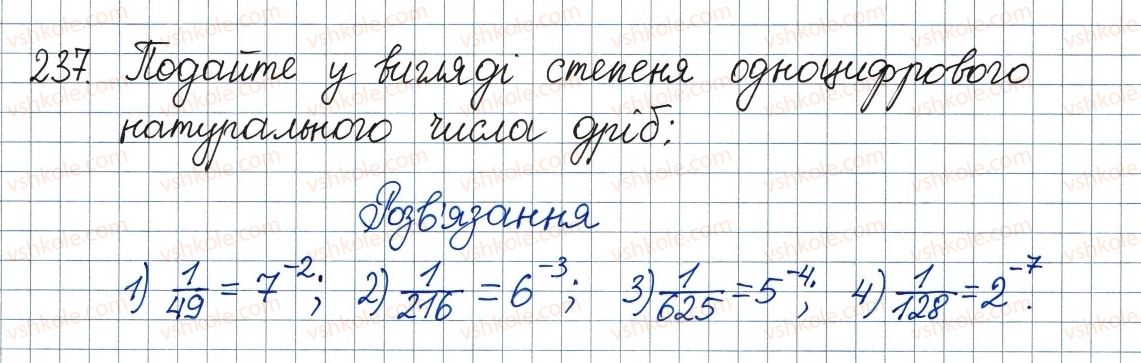 237. Подайте у вигляді степеня одноцифрового
натурального числа дріб:
Розв'язання
1) 1/49 = 7^-2; 2) 1/216 = 6^-3; 3) 1/625 = 5^-4; 4) 1/128 = 2^-7.